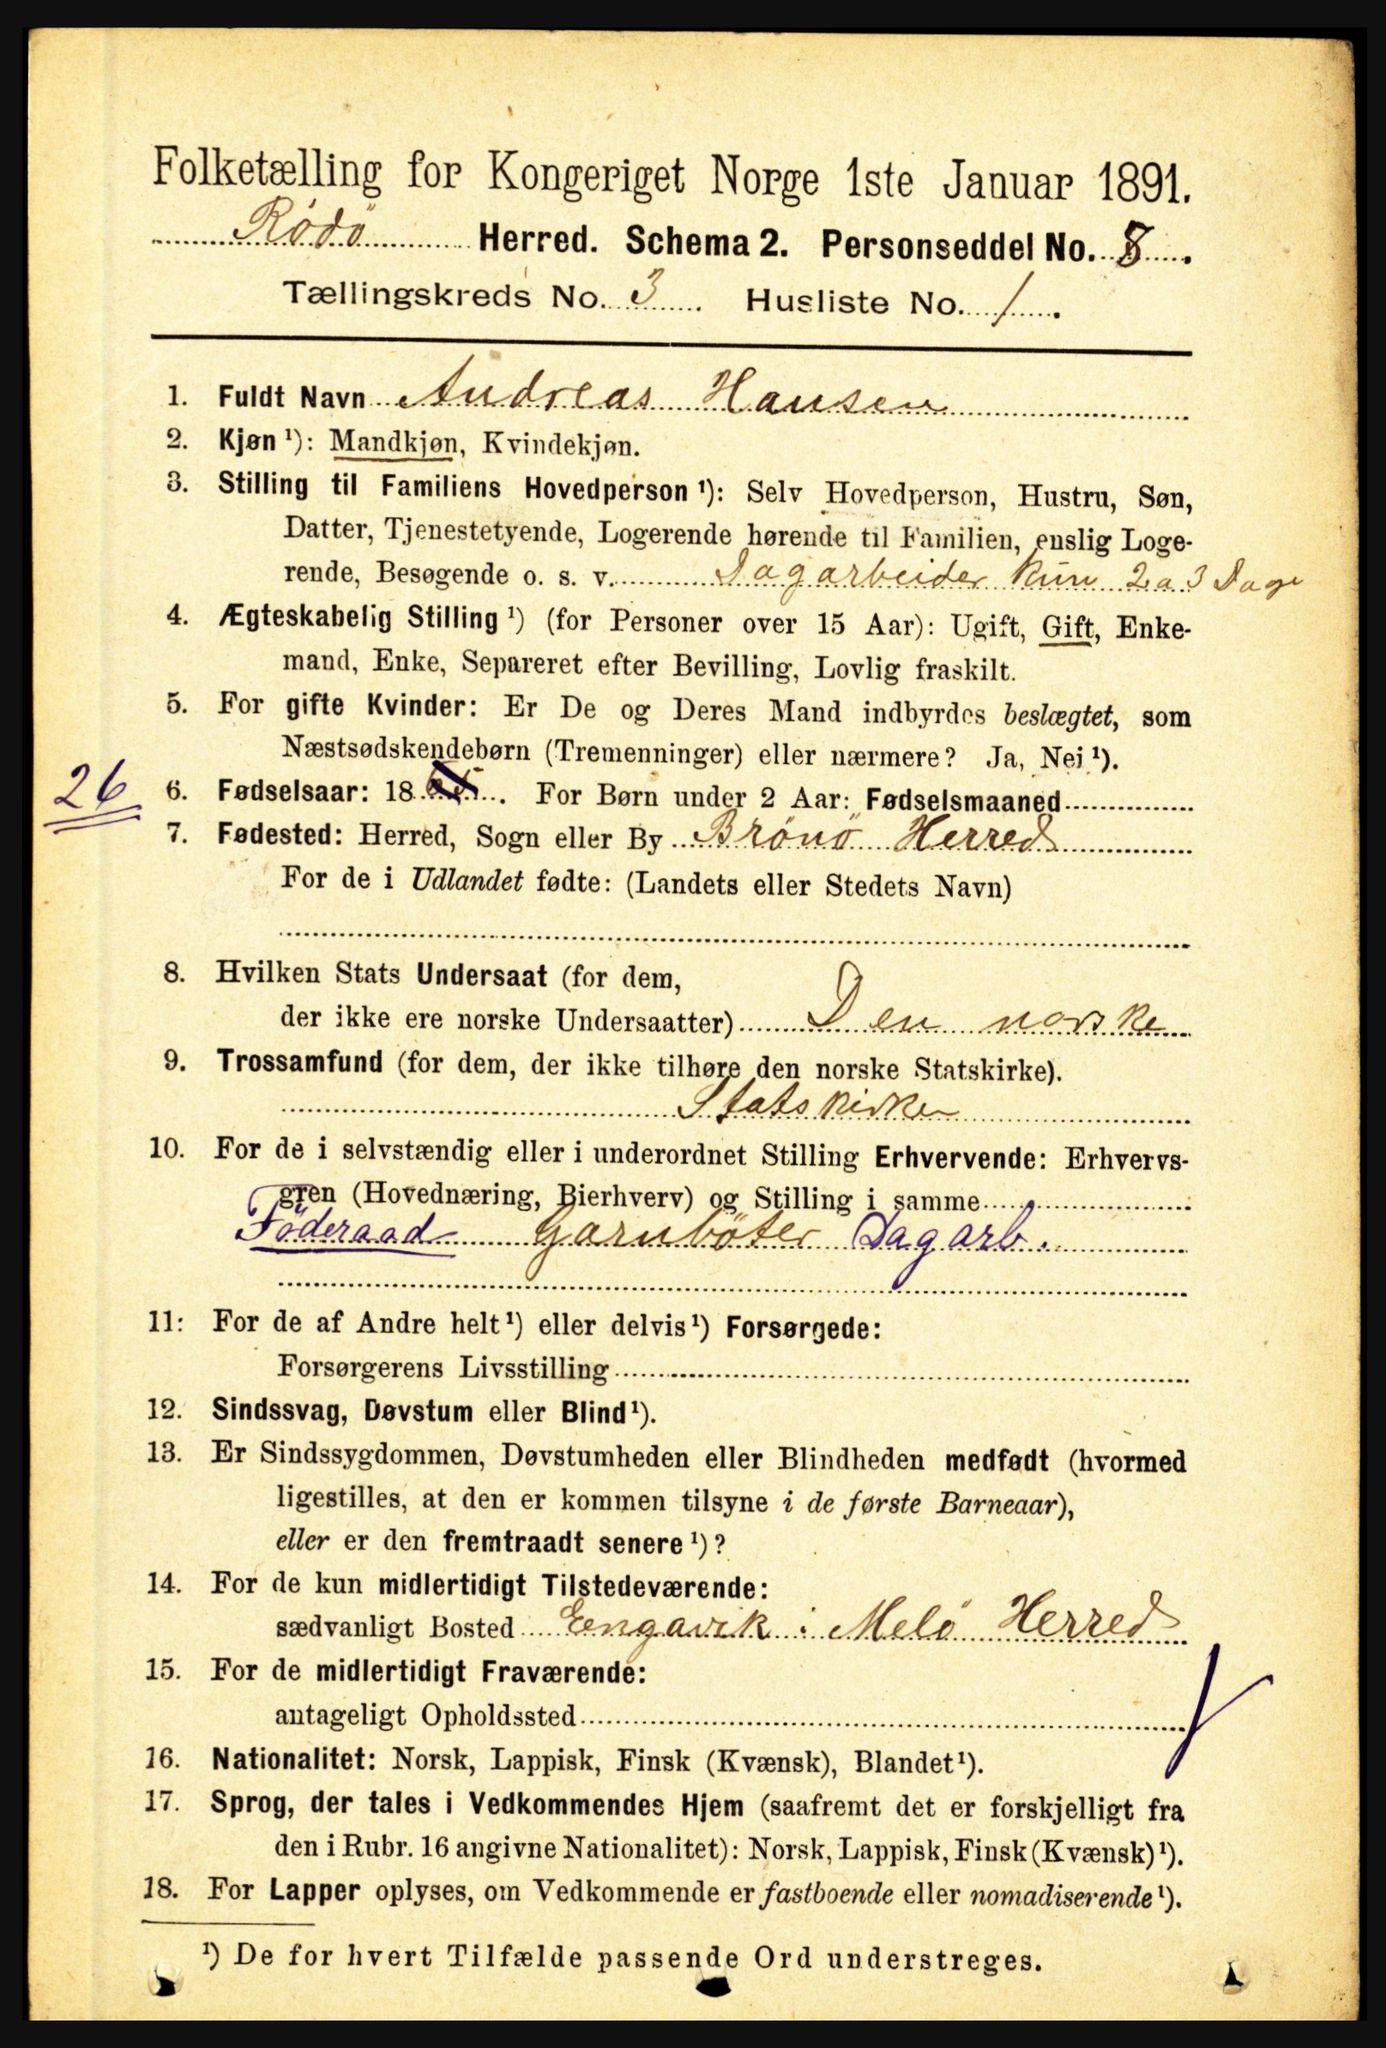 Folketælling for Kongeriget Norge 1ste Januar 1891.
Rödö Herred. Schema 2. Personseddel No. 8.
Tællingskreds No. 3. Husliste No. 1.
1. Fuldt Navn Andreas Hansen
2. Kjøn ¹): Mandkjøn, Kvindekjøn.
3. Stilling til Familiens Hovedperson ¹): Selv Hovedperson, Hustru, Søn,
Datter, Tjenestetyende, Logerende hørende til Familien, enslig Loge-
rende, Besøgende o. s. v. Dagarbeider kun 2 a 3 Dage
4. Ægteskabelig Stilling ¹) (for Personer over 15 Aar): Ugift, Gift, Enke-
mand, Enke, Separeret efter Bevilling, Lovlig fraskilt.
5. For gifte Kvinder: Er De og Deres Mand indbyrdes beslægtet, som
Næstsødskendebørn (Tremenninger) eller nærmere? Ja, Nei ¹).
26 6. Fødselsaar: 18 . For Børn under 2 Aar: Fødselsmaaned
7. Fødested: Herred, Sogn eller By Brönö Herred
For de i Udlandet fødte: (Landets eller Stedets Navn)
8. Hvilken Stats Undersaat (for dem,
der ikke ere norske Undersaatter) Den norske
9. Trossamfund (for dem, der ikke tilhøre den norske Statskirke).
Statskirken
10. For de i selvstændig eller i underordnet Stilling Erhvervende: Erhvervs-
gren (Hovednæring, Bierhverv) og Stilling i samme
Föderaad Garnböter Dagarb.
11: For de af Andre helt ¹) eller delvis ¹) Forsørgede:
Forsørgerens Livsstilling
12. Sindssvag, Døvstum eller Blind ¹).
13. Er Sindssygdommen, Døvstumheden eller Blindheden medfødt (hvormed
ligestilles, at den er kommen tilsyne i de første Barneaar),
eller er den fremtraadt senere ¹)?
14. For de kun midlertidigt Tilstedeværende:
sædvanligt Bosted Eengavik i Melö Herred
15. For de midlertidigt Fraværende:
antageligt Opholdssted
16. Nationalitet: Norsk, Lappisk, Finsk (Kvænsk), Blandet ¹).
17. Sprog, der tales i Vedkommendes Hjem (saafremt det er forskjelligt fra
den i Rubr. 16 angivne Nationalitet): Norsk, Lappisk, Finsk (Kvænsk) ¹).
18. For Lapper oplyses, om Vedkommende er fastboende eller nomadiserende ¹).
¹) De for hvert Tilfælde passende Ord understreges.